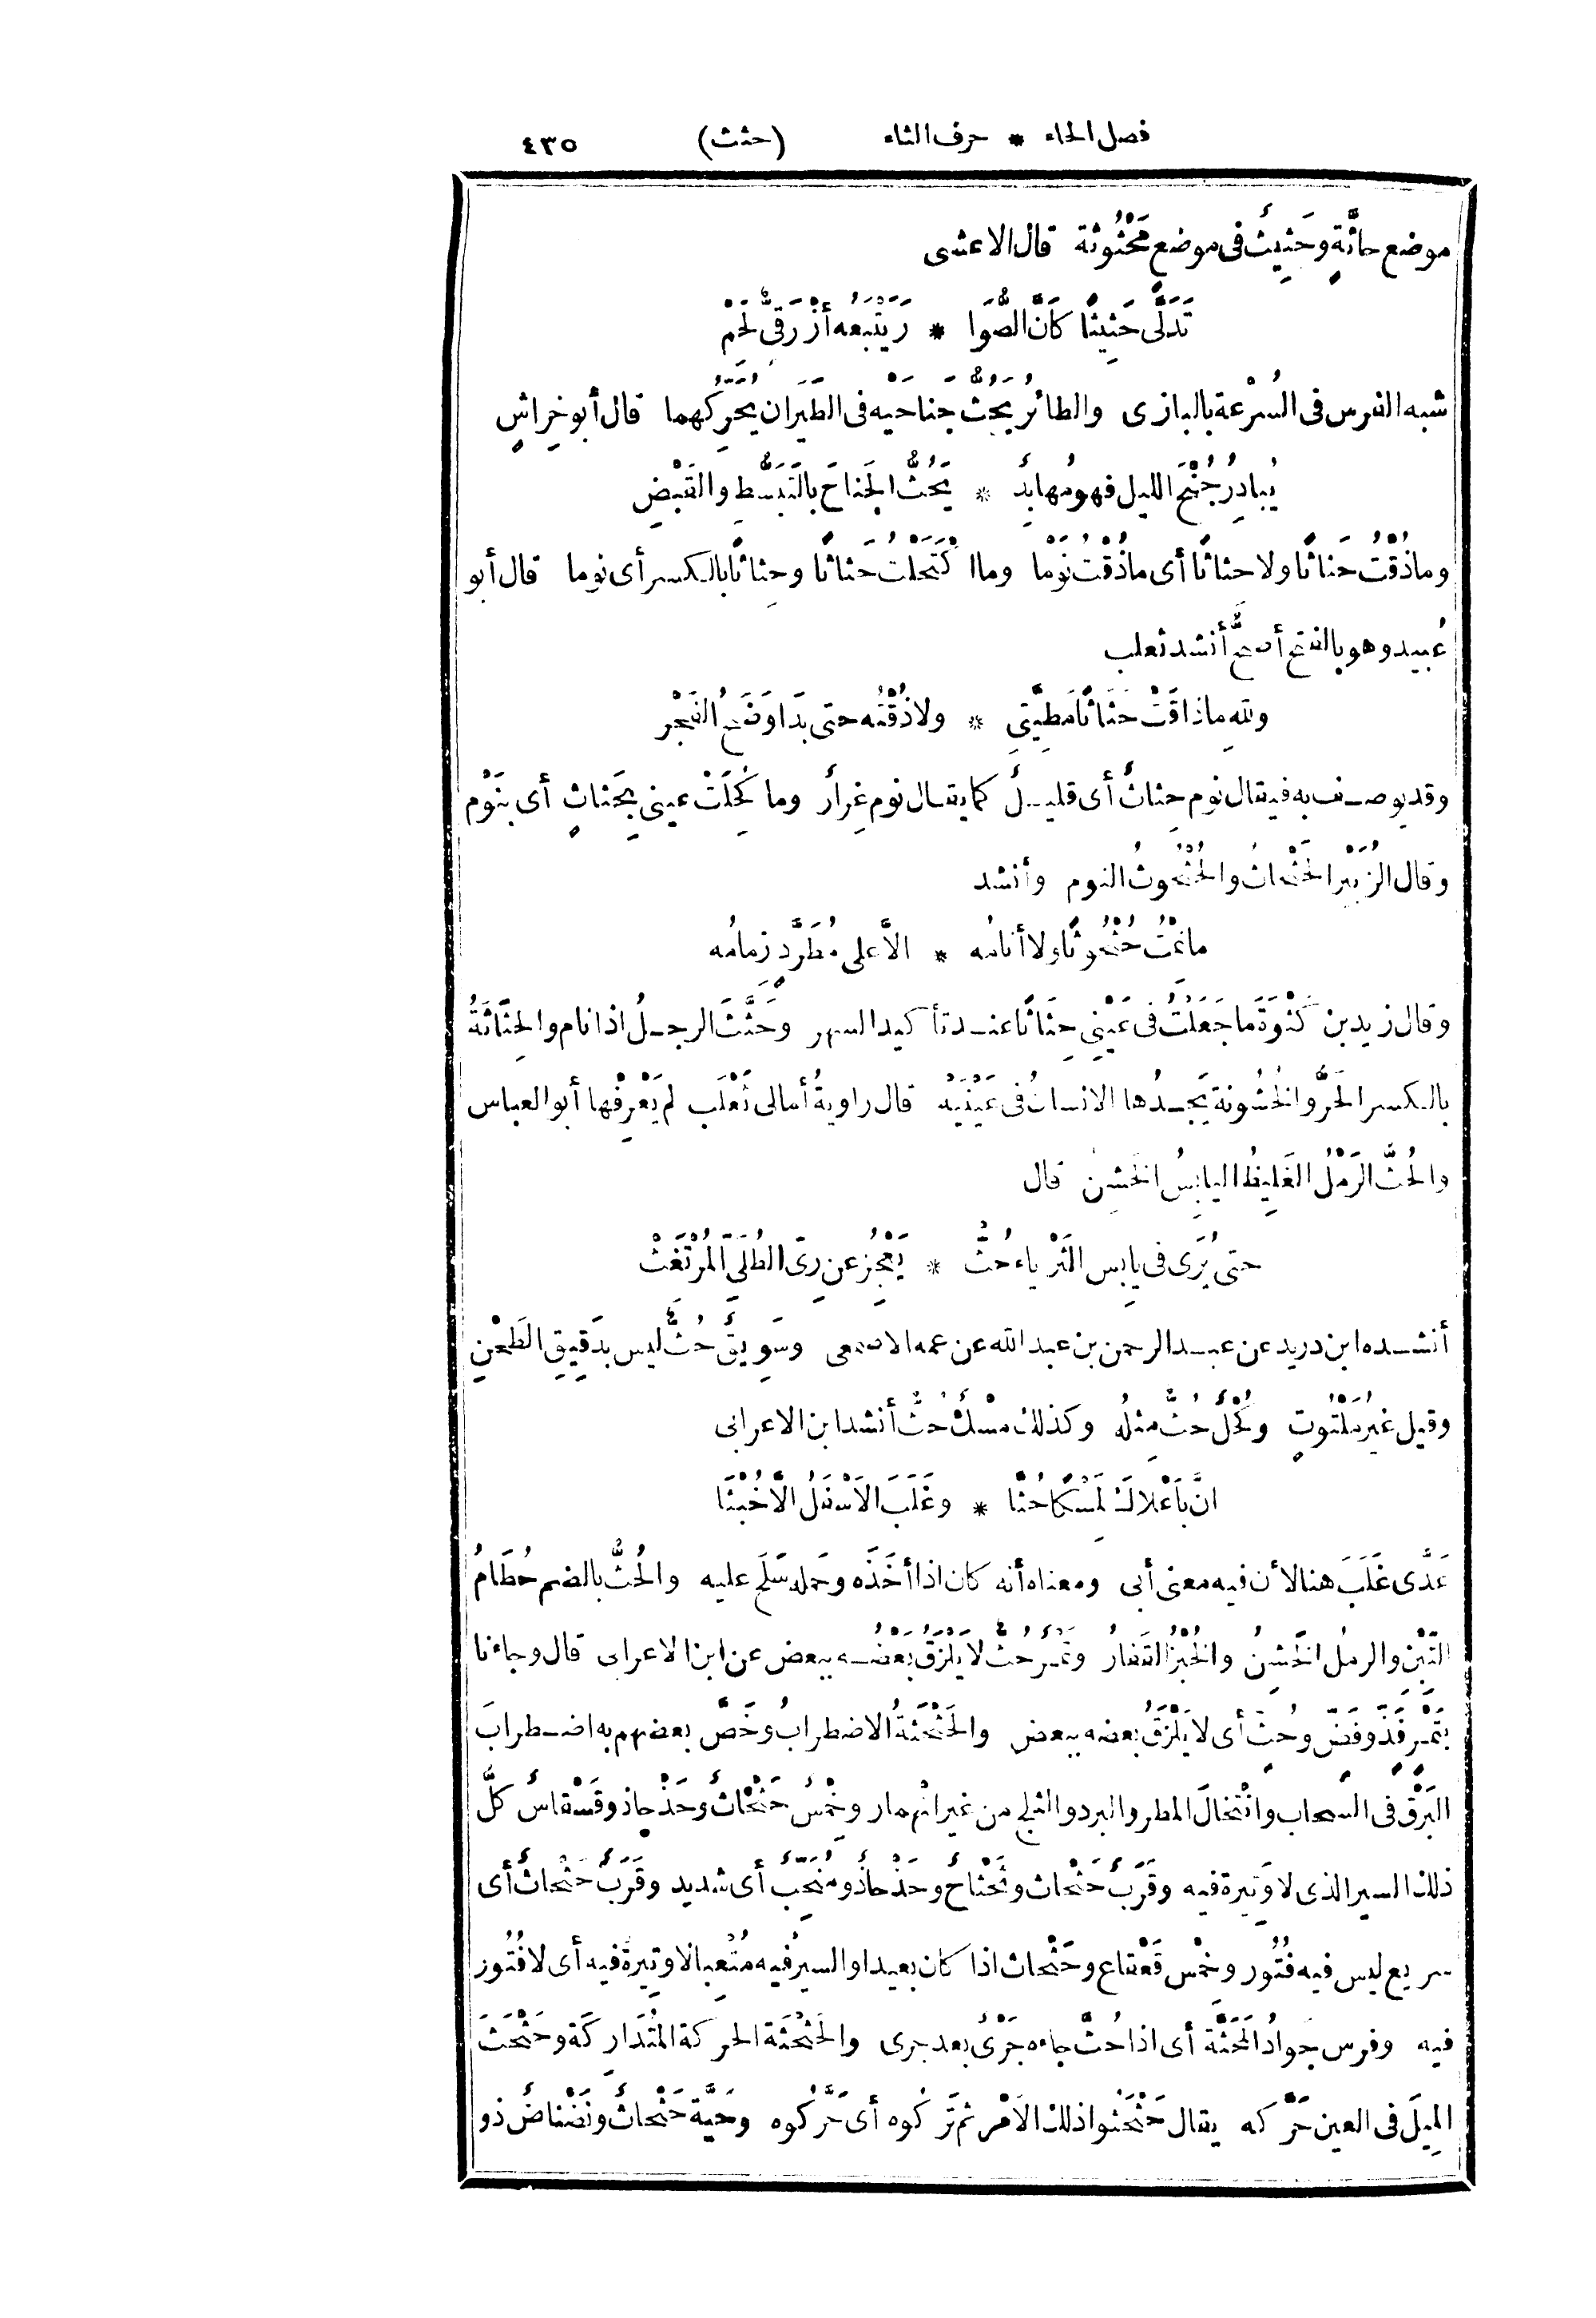 فصل الحاء * حرف الثاء (حثث) ٤٣٥
موضع حاثَّةٍ وحَثِيثٌ فى موضع مَحْثُوثة قال الاعشى
تَدَلَّى حَثِيثًا كأَنَّ الصُّوَا * رَ يَتْبَعُه أَزْرَقِىٌّ لَحِمْ
شبه الفرس فى السُرْعة بالبازى والطائرُ يَحُثُّ جناحَيْه فى الطَيَران يُحَرِّكُهما قال أبو خِراشٍ
يُبادِرُ جُنْحَ الليل فهو مُهابِذٌ * يَحُثُّ الجَناحَ بالتَبَسُّطِ والقَبْضِ
وما ذُقْتُ حَثاثًا ولا حِثاثًا أى ما ذُقْتُ نَوْما وما اكْتَحَلْتُ حَثاثًا وحِثاثًا بالكسر أى نوما قال أبو
عُبيد وهو بالفتح أصحُّ أنشد ثعلب
وللهِ ما ذاقَتْ حَثَاثًا مَطِيَّتِى * ولا ذُقْتُه حتى بَدَا وَضَحُ الفَجْر
وقد يوصف به فيقال نوم حِثاثٌ أى قليلٌ كما يقال نوم غِرارٌ وما كُحِلَتْ عينى بحَثاثٍ أى بنَوْم
وقال الزُبَيْر الحَثْحاثُ والحُثْحُوثُ النوم وأنشد
ما نِمْتُ حُثْحُوثًا ولا أنامُه * الَّا على مُطَرَّدٍ زِمامُه
وقال زيد بن كَثْوَةَ ما جَعَلْتُ فى عَيْنِى حِثَاثًا عند تأكيد السهر وحَثَّثَ الرجلُ اذا نام والحِثَاثَةُ
بالكسر الحَرُّ والخُشُونة يَجدُها الانسانُ فى عَيْنَيْه قال راويةُ أمالى ثَعْلَب لم يَعْرِفْها أبو العباس
والحُثُّ الرَمْلُ الغَلِيظُ اليابِسُ الخَشِنُ قال
حتى يُرَى فى يابِس الثَرْياء حُثّْ * يَعْجِزُ عن رِىِّ الطُلَىِّ المُرْتَغِثْ
أنشده ابن دريد عن عبد الرحمن بن عبد الله عن عمه الاصمعى وسَوِيقٌ حُثٌّ ليس بدَقِيقِ الطَحْنِ
وقيل غيرُ مَلْتُوتٍ وكُحْلٌ حُثٌّ مِثلُه وكذلك مِسْكٌ حُثٌّ أنشد ابن الاعرابى
انَّ بأَعْلاكَ لَمِسْكًا حُثَّا * وغَلَبَ الاَسْفَلُ الَّا خُبْثَا
عَدَّى غَلَبَ هنا لأن فيه معنى أبى ومعناه أنه كان اذا أخَذَه وحَمَله سَلَحَ عليه والحُثُّ بالضم حُطَامُ
التِبْنِ والرملُ الخَشِنُ والخُبْزُ القَفارُ وتَمْرٌ حُثٌّ لا يَلْزَقُ بَعْضُه ببعض عن ابن الاعرابى قال وجاءنا
بتَمْرٍ فَذٍّ وفَضٍّ وحُثٍّ أى لا يَلْزَقُ بعضه ببعض والحَثْحَثَةُ الاضطرابُ وخَصَّ بعضهم به اضطرابَ
البَرْق فى السحاب وانْتِخالَ المطر والبرد والثلج من غير انهمار وخِمْسٌ حَثْحاثٌ وحَذْحاذ وقَسْقاسٌ كلُّ
ذلك السير الذى لا وَتِيرة فيه وقَرَبٌ حَثْحاث وثَحْثاحٌ وحَذْحاذٌ ومُنَحِّبٌ أى شديد وقَرَبٌ حَثْحاثٌ أى
سريع ليس فيه فُتُور وخِمْس قَعْقاع وحَثْحاث اذا كان بعيدا والسيرُ فيه مُتْعِبا لا وتيرةَ فيه أى لا فُتُور
فيه وفرس جَوادُ المَحَثَّة أى اذا حُثَّ جاءه جَرْىٌ بعد جرى والحَثْحَثَة الحركة المُتَدَارِكَة وحَثْحَثَ
المِيلَ فى العين حَرَّكه يقال حَثْحَثُوا ذلك الأَمْر ثم تَرَكُوه أى حَرَّكُوه وحَيَّة حَثْحاثٌ ونَضْناضٌ ذو